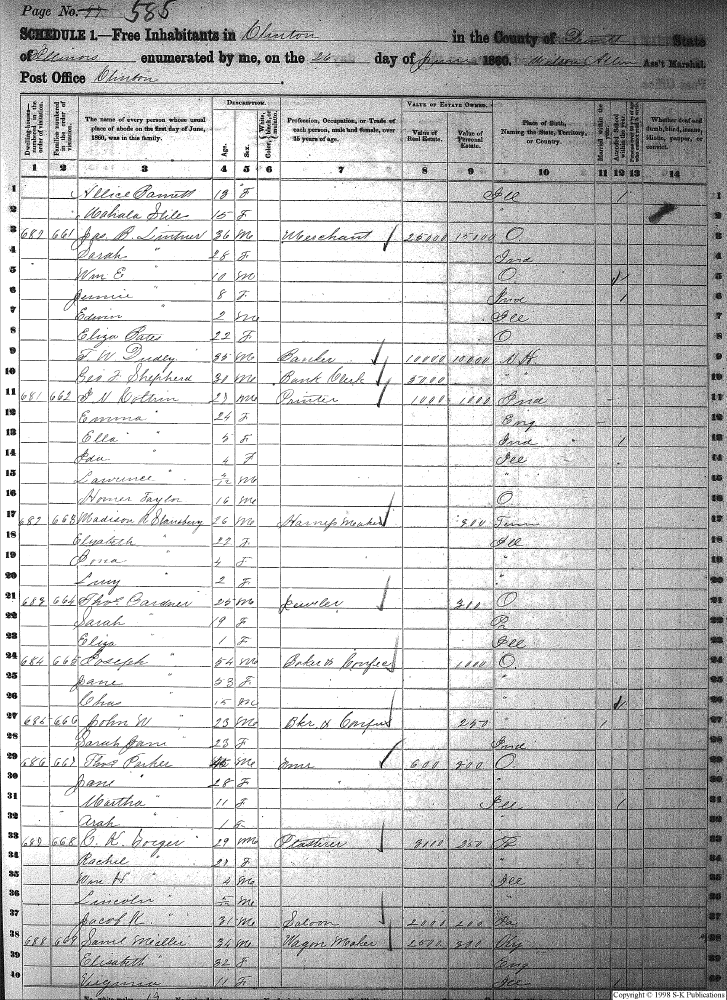 Page No. 17 585
SCHEDULE 1.—Free Inhabitants in Clinton in the County of Dewitt State
of Illinois enumerated by me, on the 26 day of June 1860. Allen Ass't Marshal.
Post Office Clinton
Dwelling-houses—numbered in the order of visitation.
Families numbered in the order of visitation.
The name of every person whose usual place of abode on the first day of June, 1860, was in this family.
DESCRIPTION.
Age.
Sex.
Color, White, black, or mulatto.
Profession, Occupation, or Trade of each person, male and female, over 15 years of age.
VALUE OF ESTATE OWNED.
Value of Real Estate.
Value of Personal Estate.
Place of Birth, Naming the State, Territory, or Country.
Married within the year.
Attended School within the year.
Whether deaf and dumb, blind, insane, idiotic, pauper, or convict.
1 2 3 4 5 6 7 8 9 10 11 12 13 14
1 Allice Barnett 13 F Ill / 1
2 Mahala Stiles 15 F " 2
3 661 Jas. B. Lintner 36 M Merchant 25000 15000 O. 3
4 Sarah " 28 F Ind 4
5 Wm E " 10 M O. / 5
6 Jennie " 8 F Ind / 6
7 Edwin " 2 M Ill 7
8 Eliza Bates 22 F O 8
9 F. W. Dudley 35 M Banker 10000 10000 N.H. 9
10 Geo. Shepherd 30 M Bank Clerk 5000 " 10
11 681 662 27 M Printer 1000 1000 Ind 11
12 Emma " 24 F Eng 12
13 Ella " 5 F Ind / 13
14 Ida " 4 F Ill 14
15 Lawrence " M " 15
16 Homer Taylor 16 M O 16
17 682 663 Madison R Stansbury 26 M Harness Maker 300 Tenn 17
18 Elizabeth " 22 F Ill 18
19 4 F " 19
20 Lucy " 2 F " 20
21 683 664 Thos. Gardner 25 M Jeweler 300 O 21
22 Sarah " 19 F Pa 22
23 Eliza " 1 F Ill 23
24 684 665 Joseph " 54 M Baker & Confec 1000 O. 24
25 Jane " 53 F " 25
26 Chas " 15 M " / 26
27 685 666 John W " 23 M Bkr. & Confec 250 " / 27
28 Sarah Jane " 23 F Ind 28
29 686 667 Thos. Parker M 600 200 O. 29
30 Jane " 28 F " 30
31 Martha " 11 F Ill / 31
32 " 1 F " 32
33 687 668 C. K. 29 M Plasterer 3000 250 Pa 33
34 Rachel " 27 F " 34
35 Wm H " 4 M Ill 35
36 Lincoln " M " 36
37 Jacob K. " 31 M Saloon 2000 200 Pa 37
38 688 669 Saml Miller 34 M Wagon Maker 2500 300 Ky 38
39 Elizabeth " 32 F Eng 39
40 Virginia " 11 F Ill 40
Copyright © 1998 S-K Publications